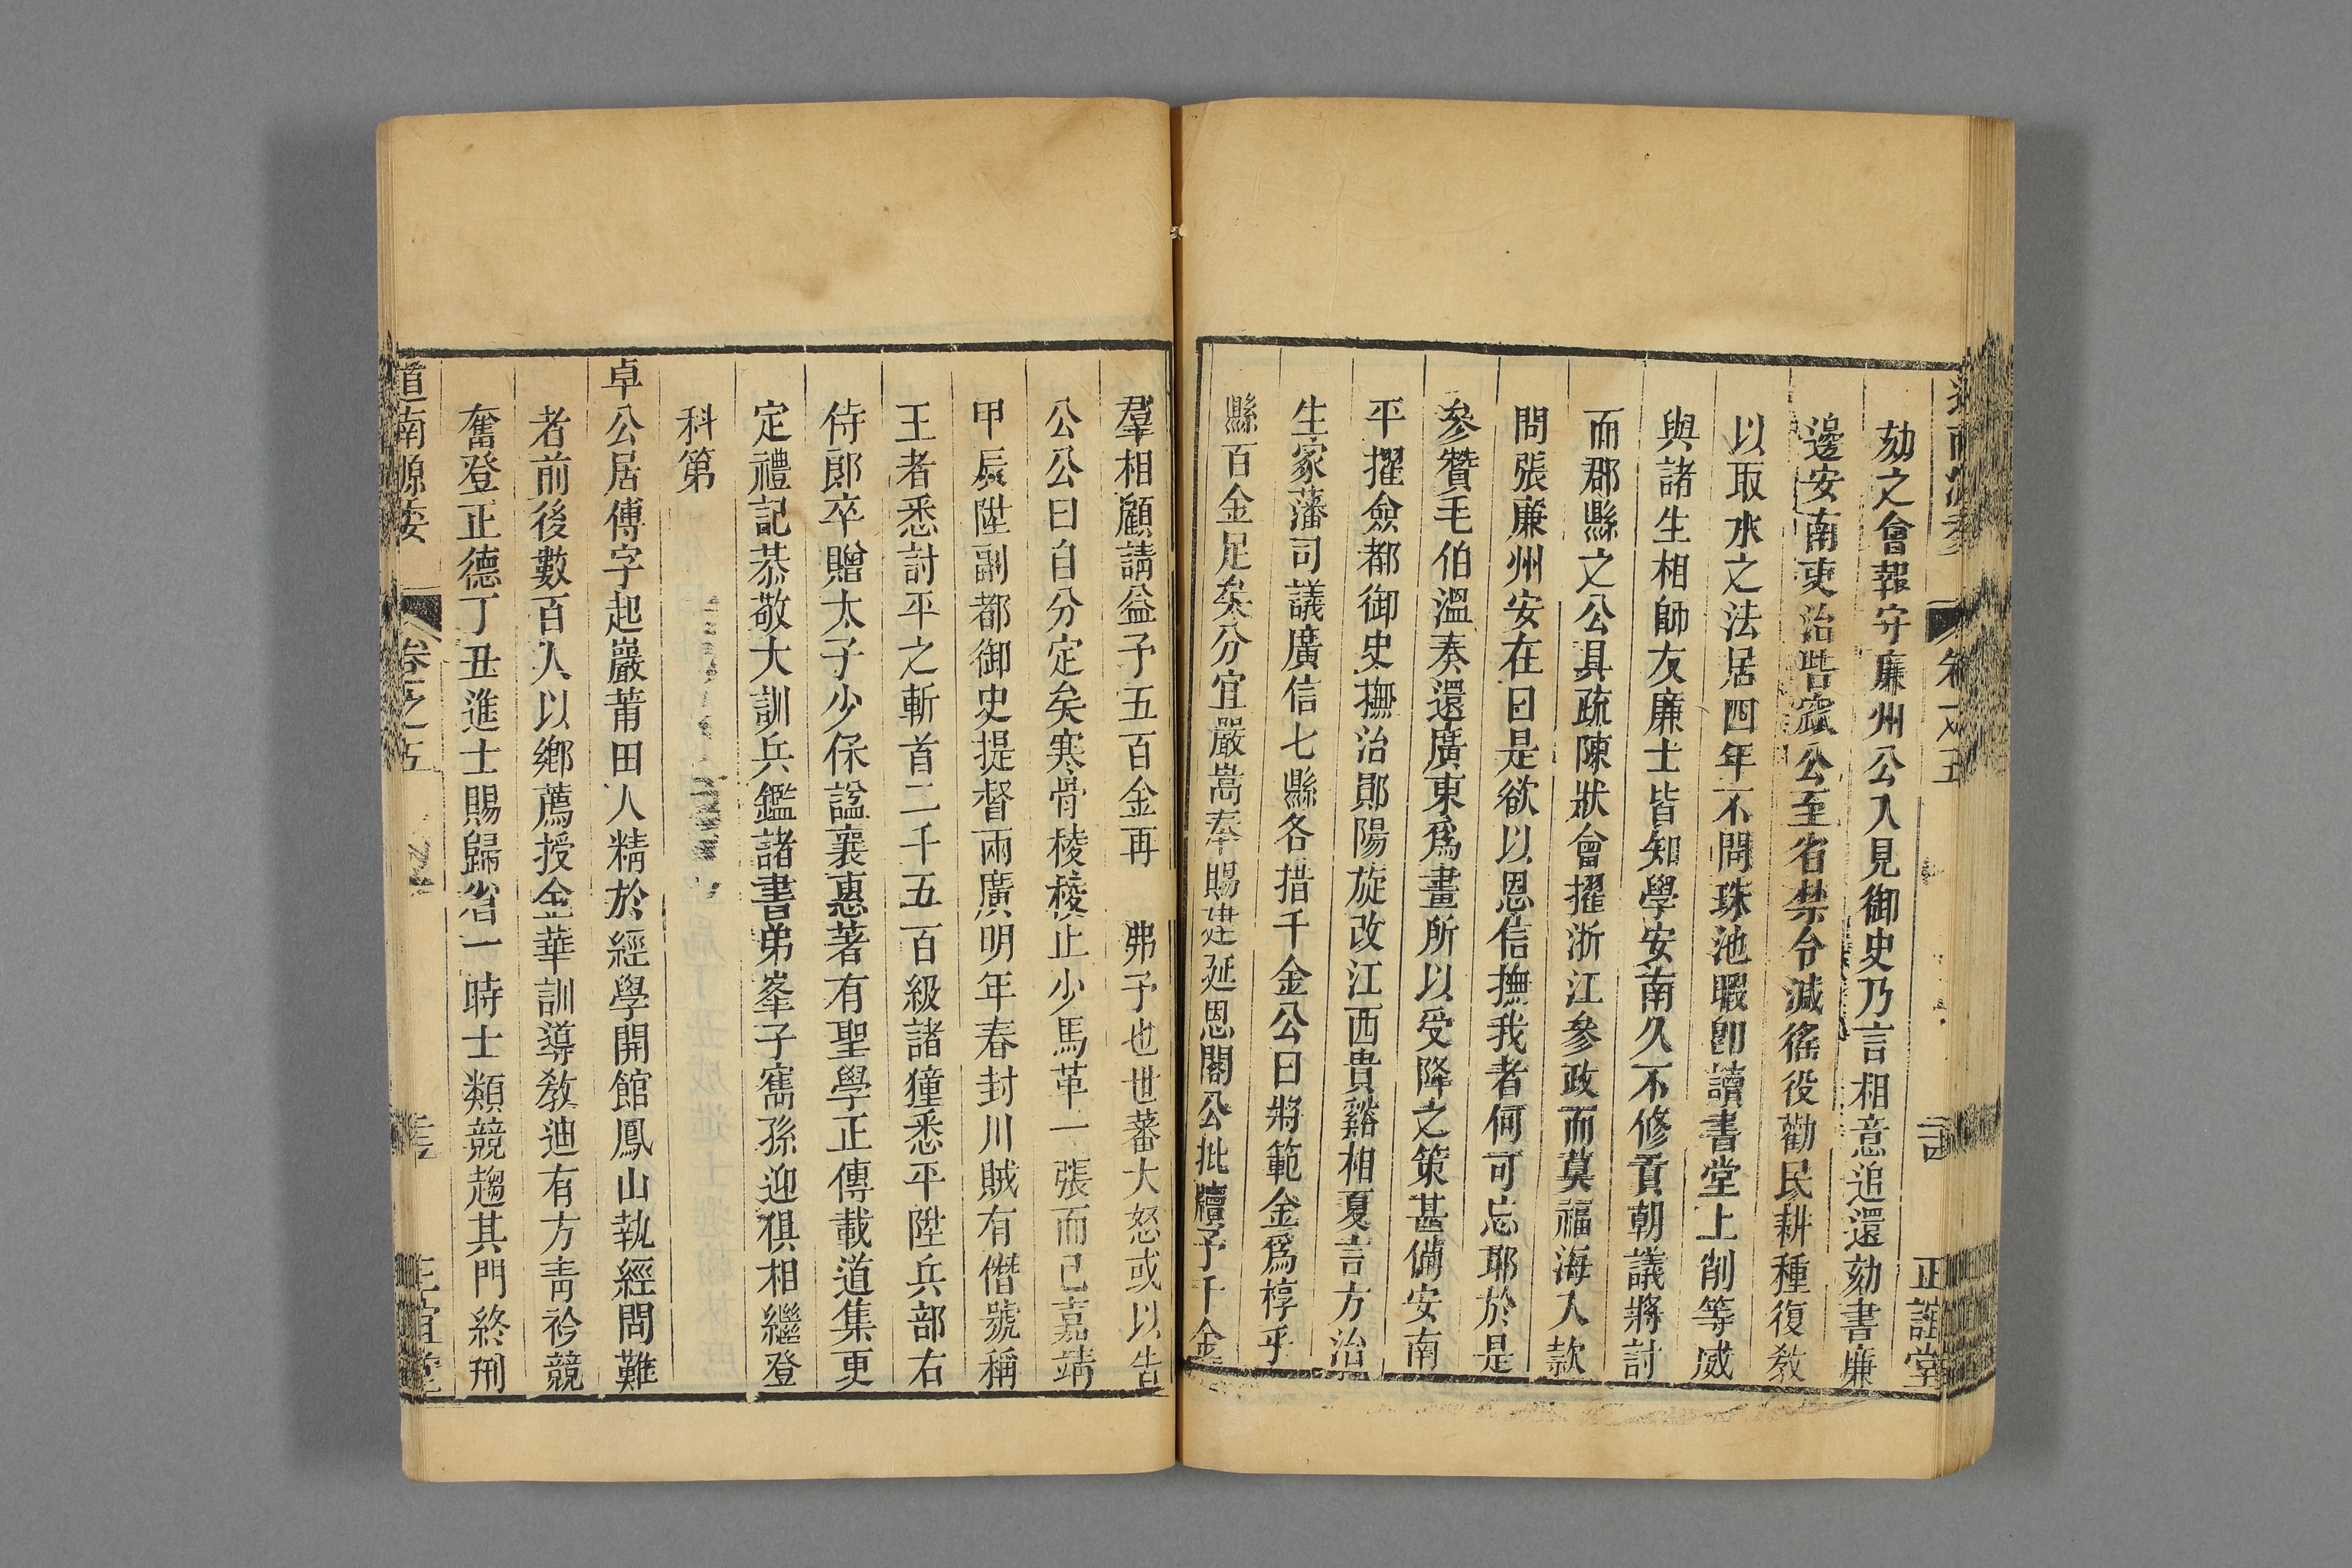 劾之會報守廉州公入見御史乃言相意追還劾書廉
邊安南吏治呰窳公至省禁令減徭役勸民耕種復教
以取水之法居四年不問珠池暇即讀書堂上削等威
與諸生相師友廉士皆知學安南久不修貢朝議將討
而郡縣之公具疏陳狀會擢浙江參政而莫福海入款
問張廉州安在曰是欲以恩信撫我者何可忘耶於是
參贊毛伯溫奏還廣東爲畫所以受降之策甚備安南
平擢僉都御史撫治鄖陽旋改江西貴谿相夏言方治
生冢藩司議廣信七縣各措千金公曰將範金爲椁乎
縣百金足矣分宜嚴嵩奉賜建延恩閣公批牘予千金
正誼堂
羣相顧請益予五百金再 弗予也世蕃大怒或以告
公公曰自分定矣寒骨稜稜止少馬革一張而已嘉靖
甲辰陞副都御史提督兩廣明年春封川賊有僭號稱
王者悉討平之斬首二千五百級諸獞悉平陞兵部右
侍郎卒贈太子少保諡襄惠著有聖學正傳載道集更
定禮記恭敬大訓兵鑑諸書弟峯子寯孫迎俱相繼登
科第
卓公居傅字起巖莆田人精於經學開館鳳山執經問難
者前後數百人以鄉薦授金華訓導教迪有方青衿競
奮登正德丁丑進士賜歸省一時士類競趨其門終刑
道南源委 卷之五